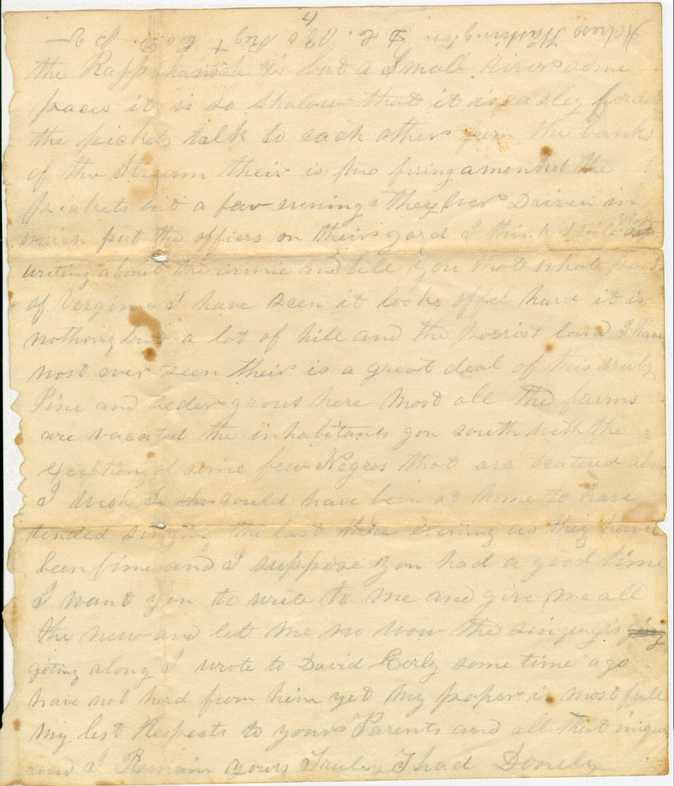 4
Address Washington D. C. 126 Reg t Co. D.
the Rappahanock is but a Small river some
places it is so Shalow that it is easley
the pickets talk to each other the banks
of the Stream their is no firing amonkst the
Prickets but a few evenings they ver Driven in
the offiers on their gard I think I will
writing about the armie and tell you that whole
of Verginia I have seen it looks have it is
nothing but a lot of hill and the poorist land I have
most ever seen their is a great deal of this
Pine and seder grous here Most all the farms
are vacated the inhabitants gon south with the
of some few Negros that are
I wish I could have been at home to have
tended singin the last evening as they have
been fine and I suppose you had a good time
I want you to write to me and give me all
the new and let me no how the singing is
goting along I wrote to David Eerly some time ago
have not had from him yet My paper is most full
My best Respects to yours Parents and all that
and I Remain yours Truley Thad Donely